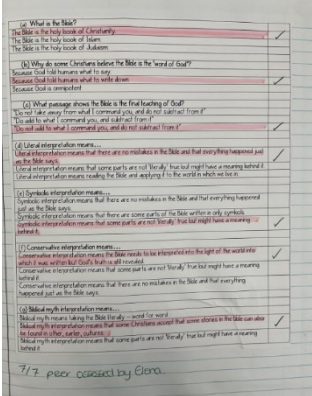 (a) What is the Bible?
The Bible is the holy book of Christianity
The Bible is the holy book of Islam
The Bible is the holy book of Judaism
(b) Why do some Christians believe the Bible is the 'word of God'?
Because God told humans what to say
Because God told humans what to write down
Because God is omnipotent
(c) What passage shows the Bible is the final teaching of God?
"Do not take away from what I command you, and do not subtract from it"
"Do add to what I command you, and subtract from it"
"Do not add to what I command you, and do not subtract from it"
(d) Literal interpretation means...
Literal interpretation means that there are no mistakes in the Bible and that everything happened just
as the Bible says.
Literal interpretation means that some parts are not 'literally' true but might have a meaning behind it
Literal interpretation means reading the Bible and applying it to the world in which we live in
(e) Symbolic interpretation means...
Symbolic interpretation means that there are no mistakes in the Bible and that everything happened
just as the Bible says.
Symbolic interpretation means that there are some parts of the Bible written in only symbols.
Symbolic interpretation means that some parts are not 'literally' true but might have a meaning
behind it.
(f) Conservative interpretation means...
Conservative interpretation means the Bible needs to be interpreted into the light of the world into
which it was written but God's truth is still revealed
Conservative interpretation means that some parts are not 'literally' true but might have a meaning
behind it
Conservative interpretation means that there are no mistakes in the Bible and that everything
happened just as the Bible says.
(g) Biblical myth interpretation means...
Biblical myth means taking the Bible literally – word for word
Biblical myth interpretation means that some Christians accept that some stories in the Bible can also
be found in other, earlier, cultures
Biblical myth interpretation means that some parts are not 'literally' true but might have a meaning
behind it
7/7 peer assessed by Elena